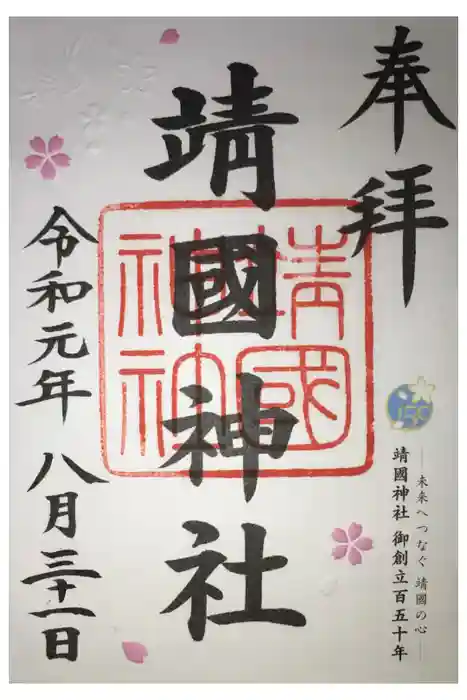 奉拝
150
未来へつなぐ 靖國の心
靖國神社 御創立百五十年
靖國神社
靖國神社
令和元年 八月三十一日